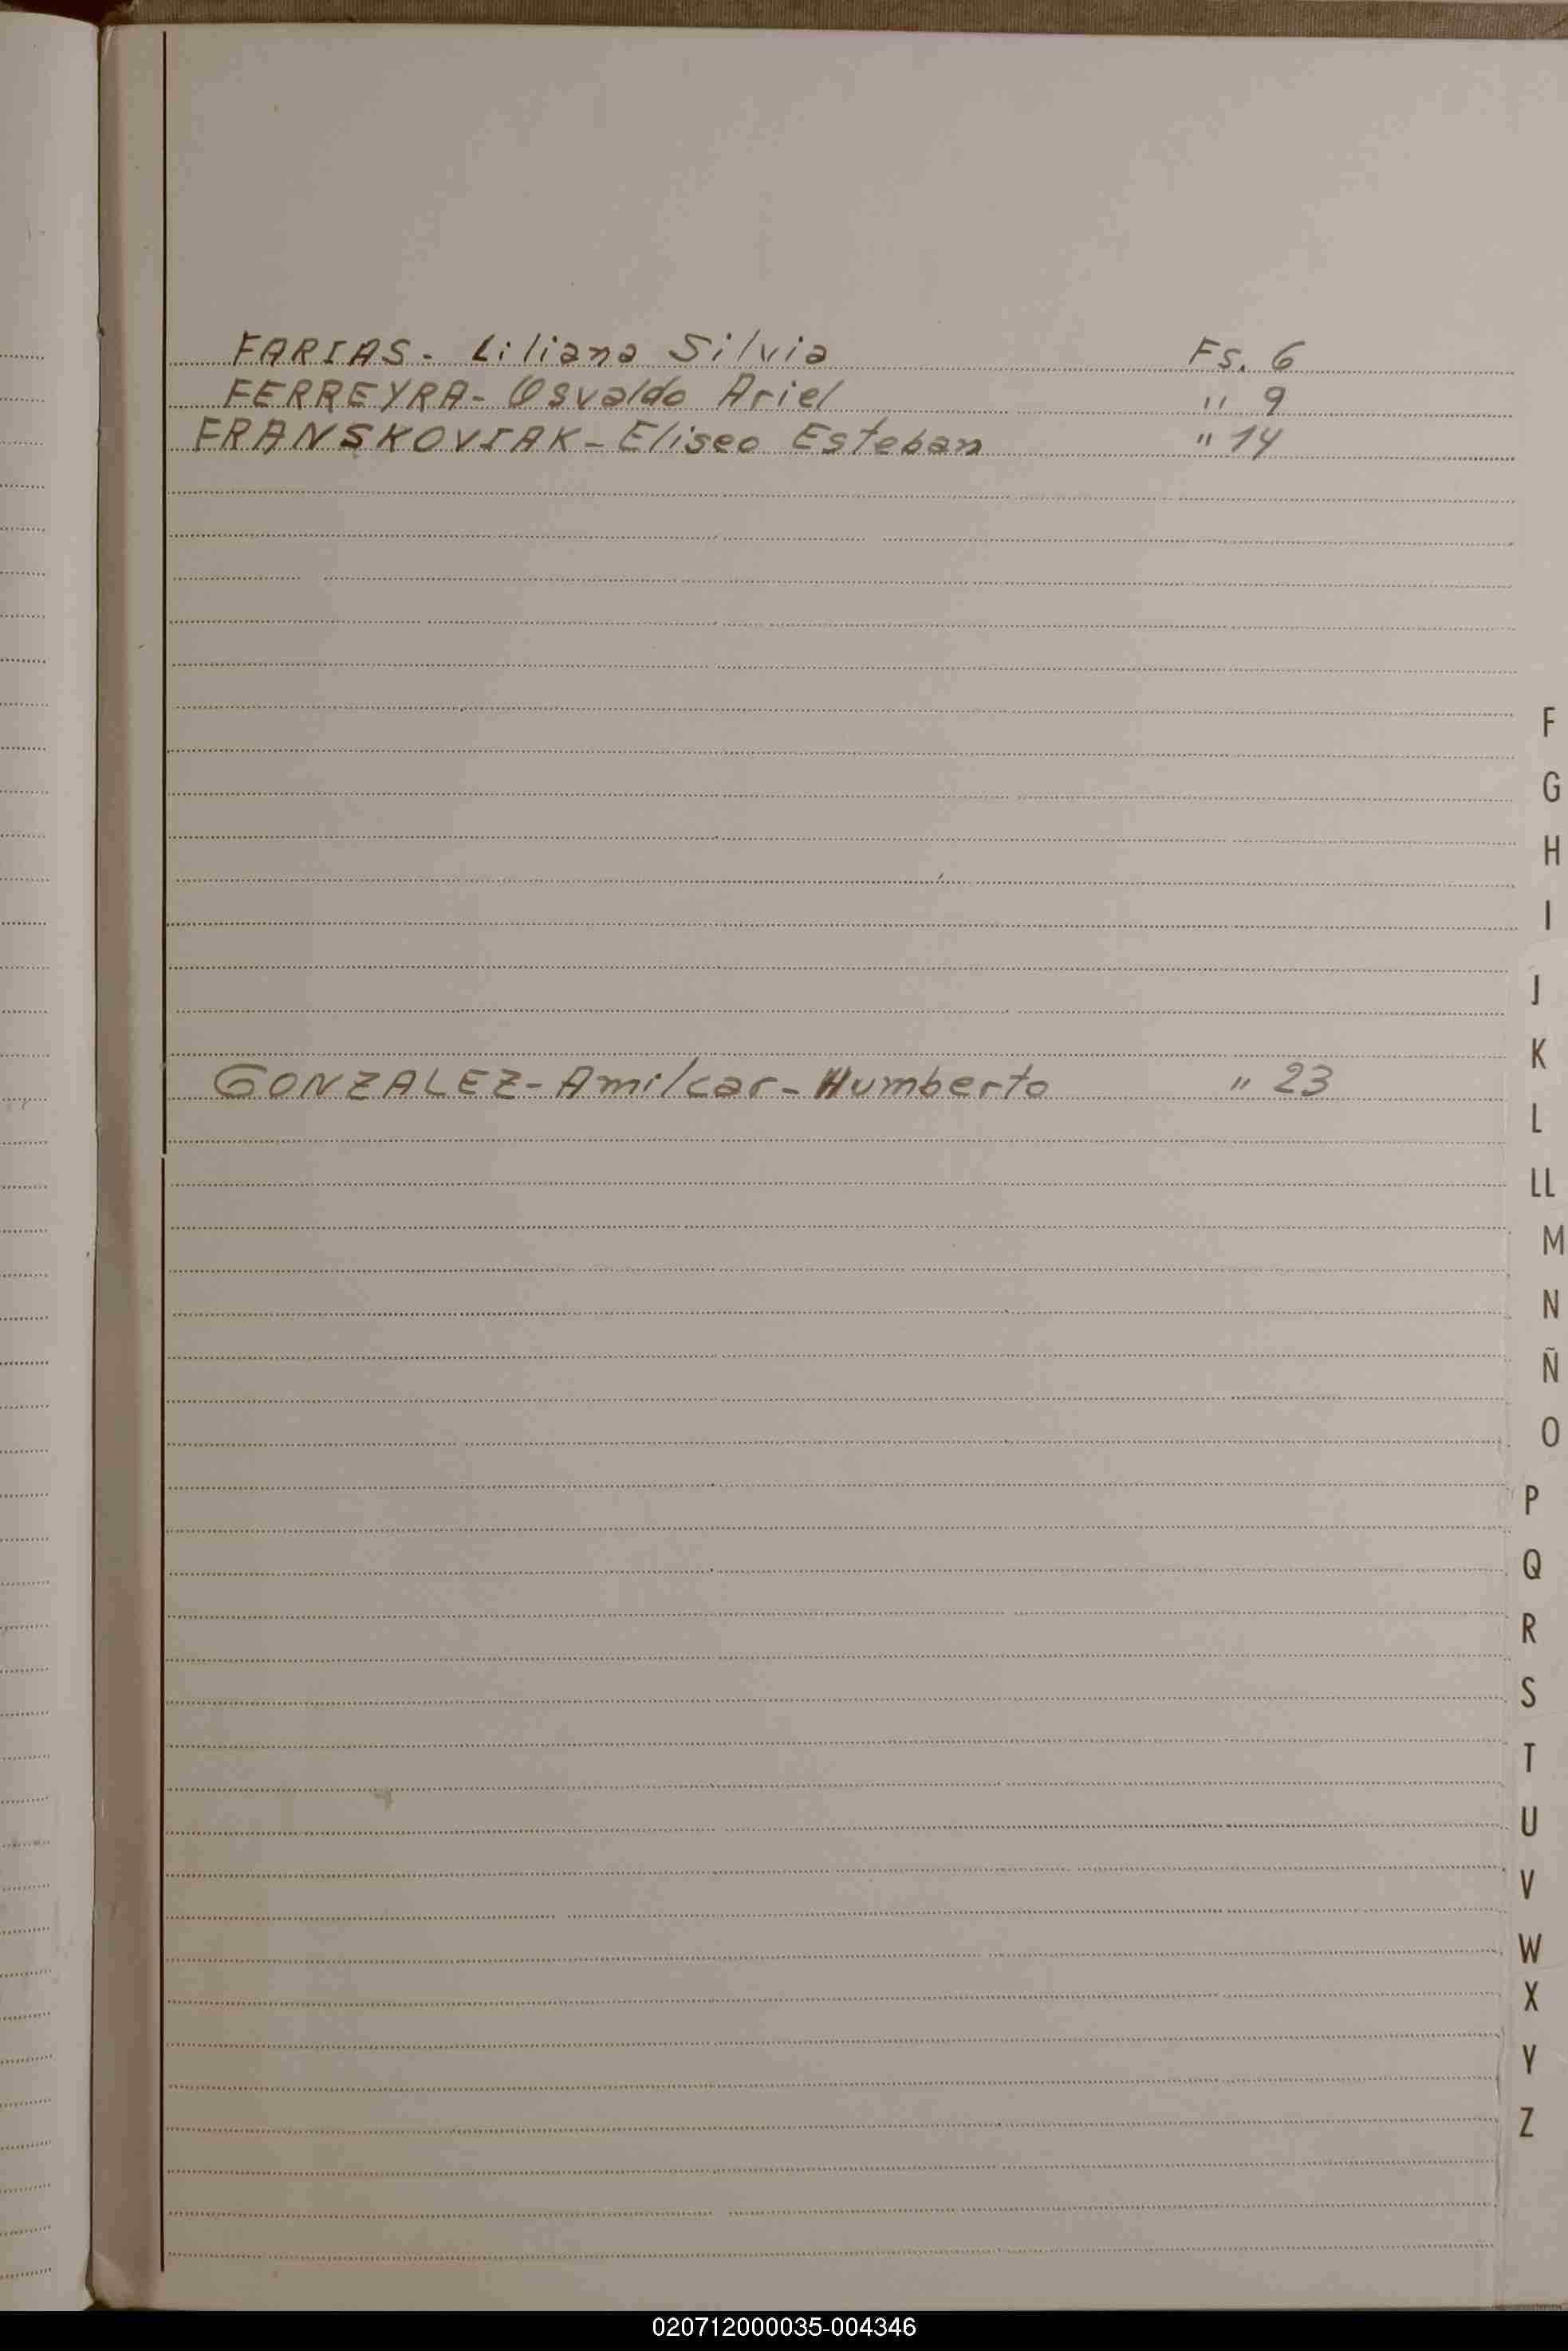 FARIAS- Liliana Silvia Fs. 6
FERREYRA- Osvaldo Ariel " 9
FRANSKOVIAK- Eliseo Esteban " 14
GONZALEZ- Amilcar- Humberto " 23
F
G
H
I
J
K
L
LL
M
N
Ñ
O
P
Q
R
S
T
U
V
W
X
Y
Z
020712000035-004346